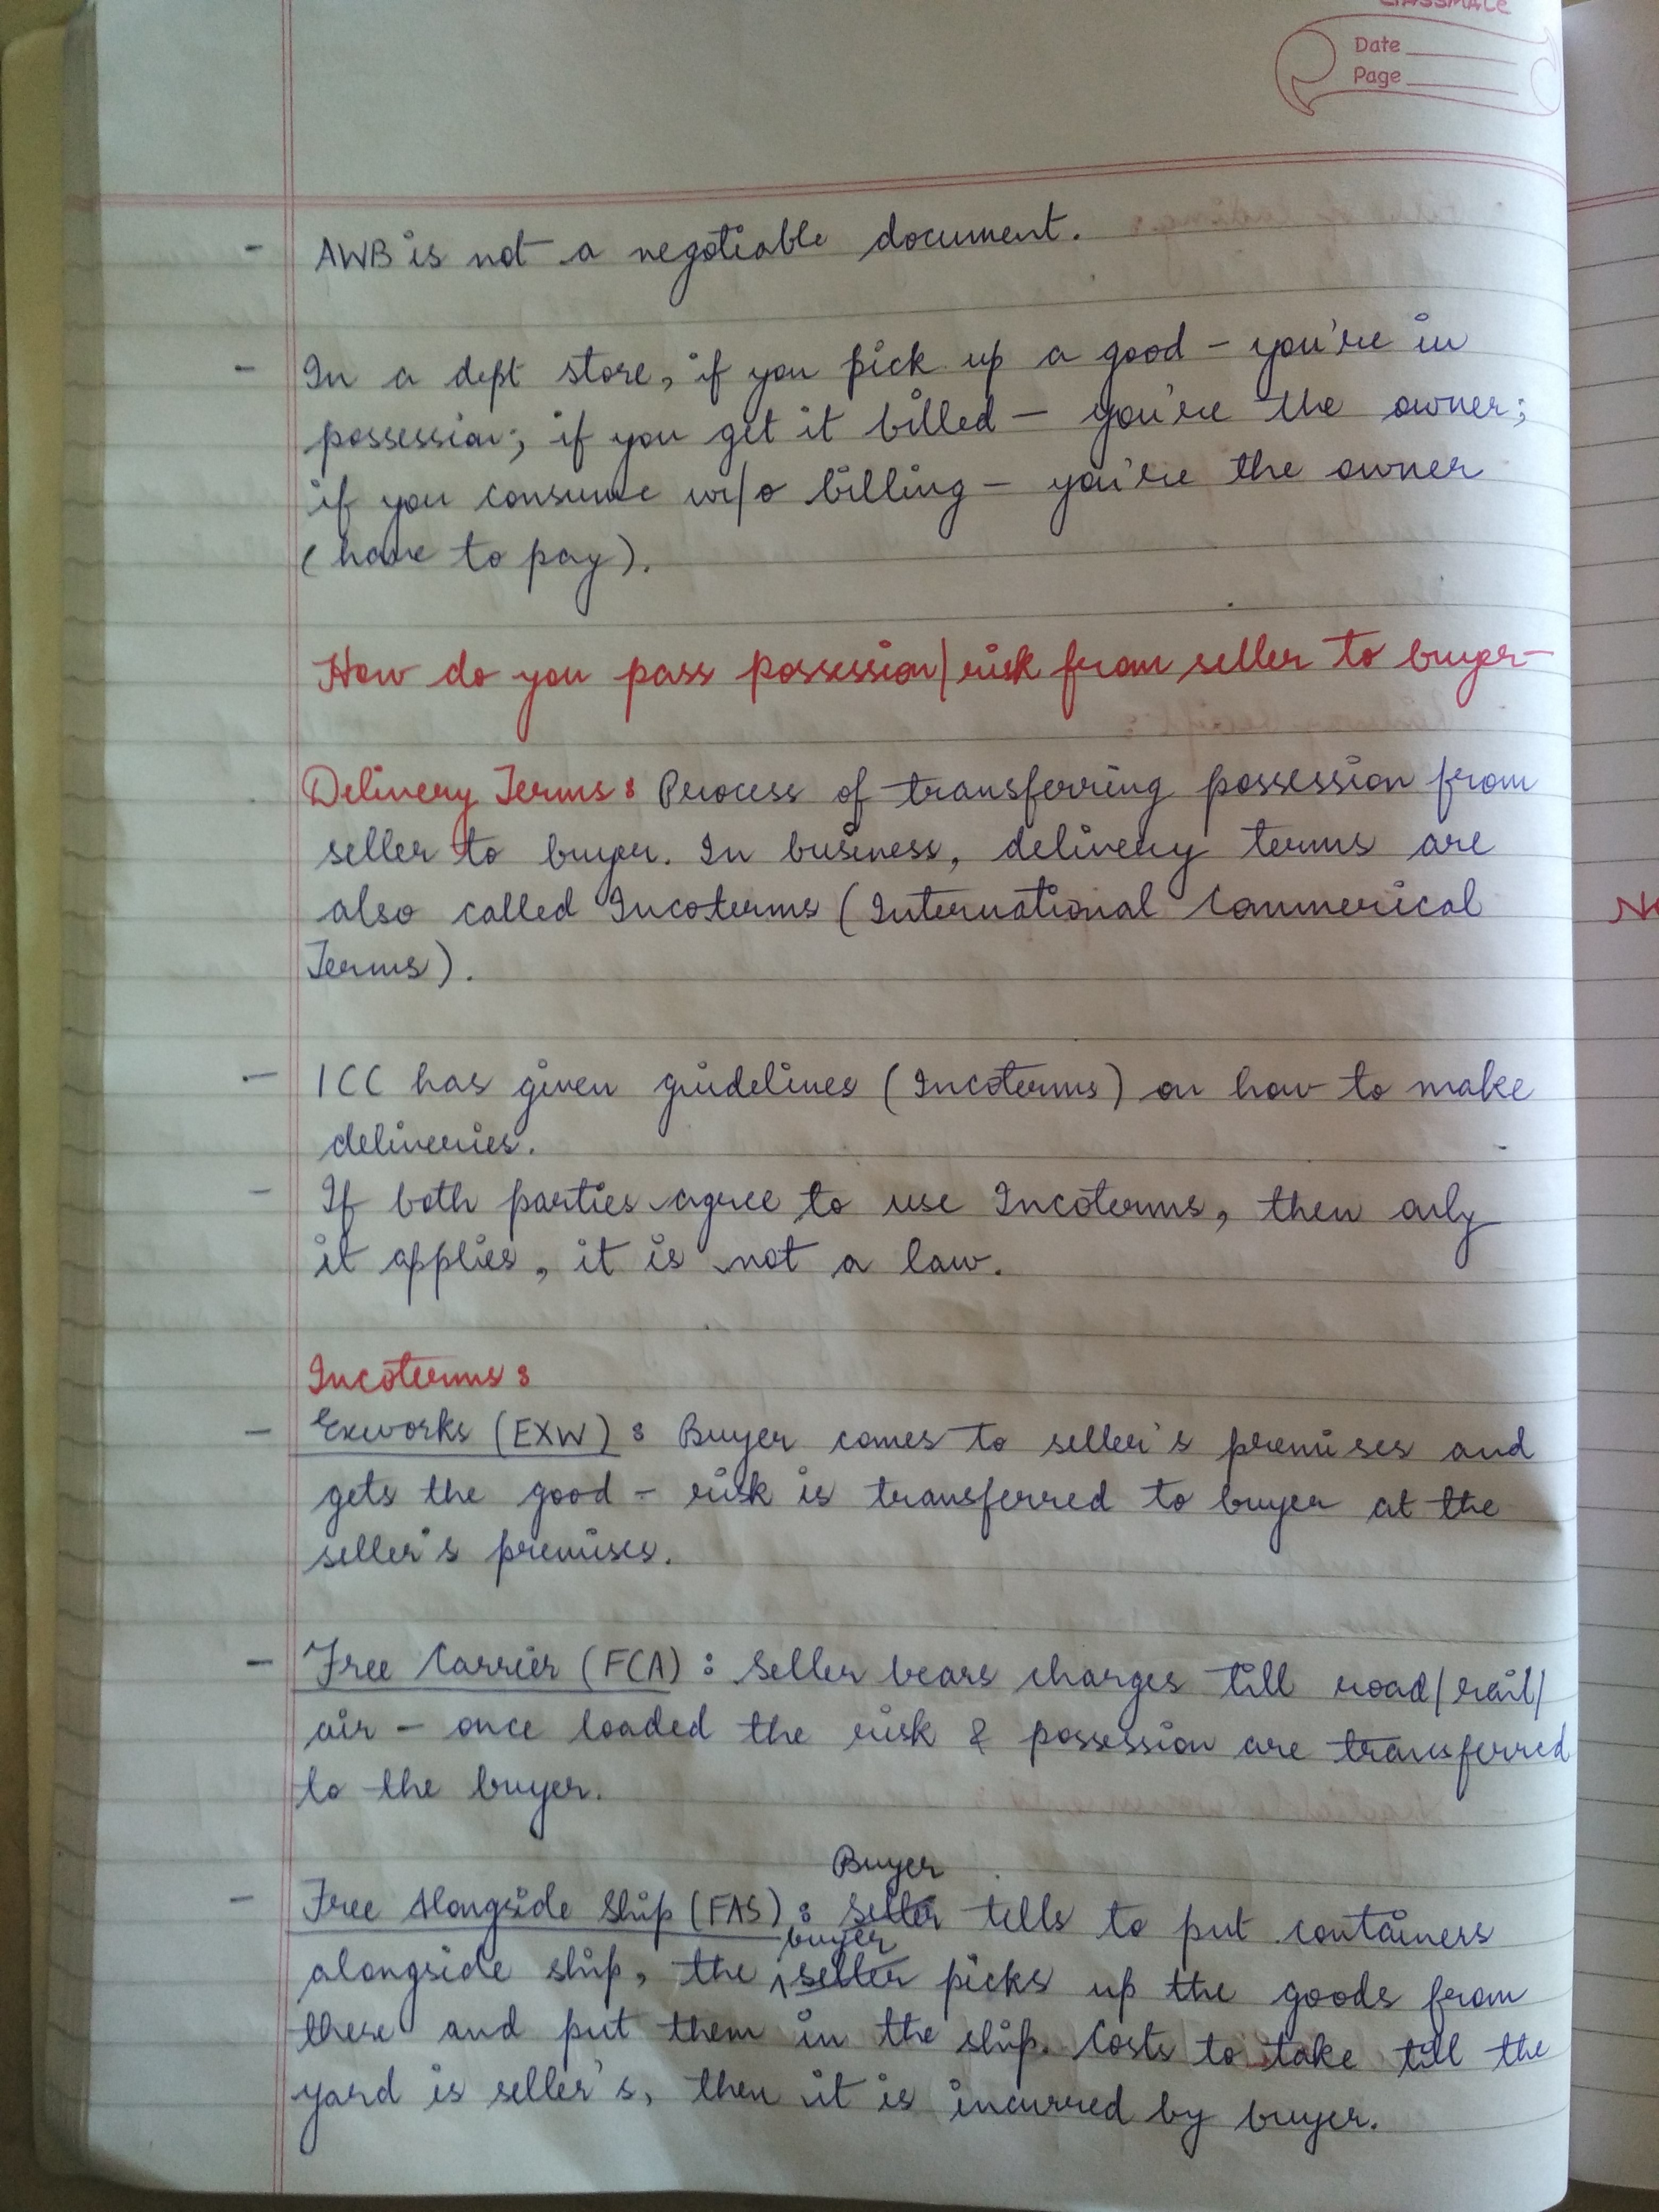 classmate
Date
Page
- AWB is not a negotiable document.
- In a dept store, if you pick up a good - you're in
possession; if you get it billed - you're the owner;
if you consume w/o billing - you're the owner
(have to pay).
How do you pass possession/risk from seller to buyer-
Delivery Terms: Process of transferring possession from
seller to buyer. In business, delivery terms are
also called Incoterms (International Commerical
Terms).
- ICC has given guidelines (Incoterms) on how to make
deliveries.
- If both parties agree to use Incoterms, then only
it applies, it is not a law.
Incoterms:
- Exworks (EXW): Buyer comes to seller's premises and
gets the good - risk is transferred to buyer at the
seller's premises.
- Free Carrier (FCA): Seller bears charges till road/rail/
air - once loaded the risk & possession are transferred
to the buyer.
Buyer
- Free Alongside Ship (FAS): Seller tells to put containers
buyer
alongside ship, the seller picks up the goods from
there and put them in the ship. Costs to take till the
yard is seller's, then it is incurred by buyer.